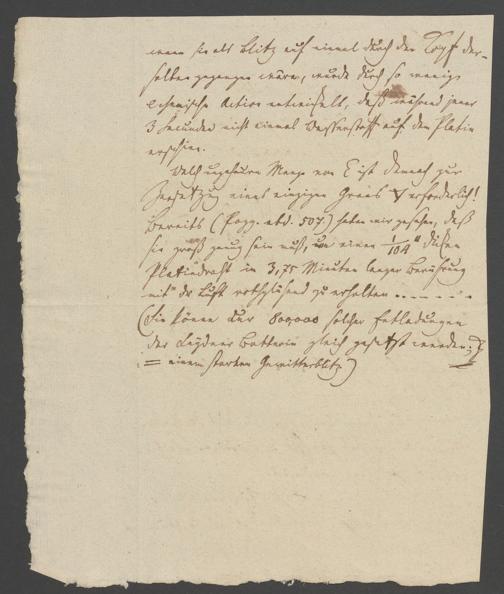 wenn sie als Blitz auf einmal durch den Kopf der-
selben gegangen wäre, wurde durch so wenig
chemische Action entwickelt, daß während jener
3 Secunden nicht einmal Wasserstoff auf dem Platin
erschien.
Welch ungeheure Menge von E ist demnach zur
Zersetzung eines einzigen Grans erforderlich!
Bereits (Pogg. 507.) haben wir gesehen, daß
sie groß genug sein muß, um einen 1/104" dicken
Platindraht in 3,75 Minuten langer Berührung
mit der Luft rothglühend zu erhalten . . . . . . .
(Sie können 800,000 solcher Entladungen
der Leydner Batterie gleich gesetzt werden;
= einem starken Gewitterblitz)